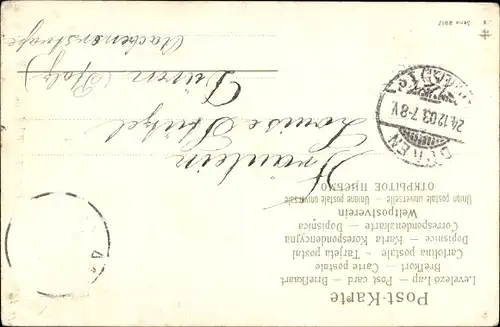 Post-Karte
Levelező-Lap — Post card — Briefkaart
Brefkort — Carte postale
Cartolina postale — Tarjeta postal
Dopisnice — Karta Korespondencyjna
Correspondenzkarte — Dopisnica
Weltpostverein
Union postale universelle — Unione postale universale
ОТКРЫТОЕ ПИСЬМО
24.12.03.7-8V.
Fräulein
Louise
Düren (Pfalz)
Serie 8917